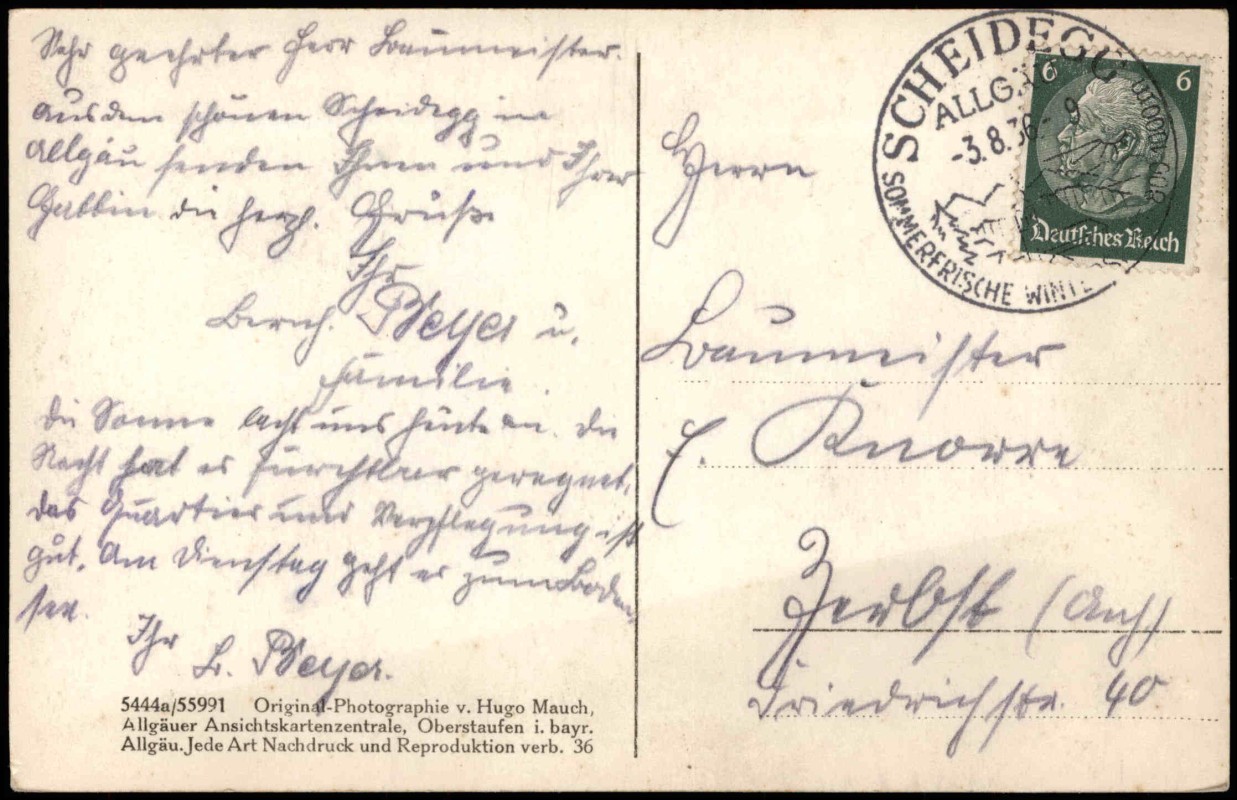 Sehr geehrter Herr Baumeister.
Aus dem schönen Scheidegg im
Allgäu senden Ihnen und Ihrer
Gattin die herzl. Grüße
Ihr
Bernh. Beyer u.
Familie.
Die Sonne lacht uns heute an. Die
Nacht hat es furchtbar geregnet,
das Quartier und Verpflegung ist
gut. Am Dienstag geht es zum Boden
see.
Ihr
B. Beyer.
5444a/55991 Original-Photographie v. Hugo Mauch,
Allgäuer Ansichtskartenzentrale, Oberstaufen i. bayr.
Allgäu. Jede Art Nachdruck und Reproduktion verb. 36
SCHEIDEGG
ALLGÄU
-3.8.36-9
SOMMERFRISCHE WINTE
6 6
Deutsches Reich
Herrn
Baumeister
E. Knorre
Zerbst (Anh)
Friedrichstr. 40